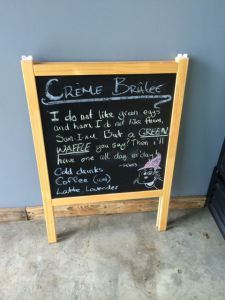 CRÈME BRÛLEE
I do not like green eggs
and ham. I do not like them,
Sam-I-Am. But a GREEN
WAFFLE you say? Then I'll
have one all day everyday!
Cold drinks
Coffee
Latte Lavender